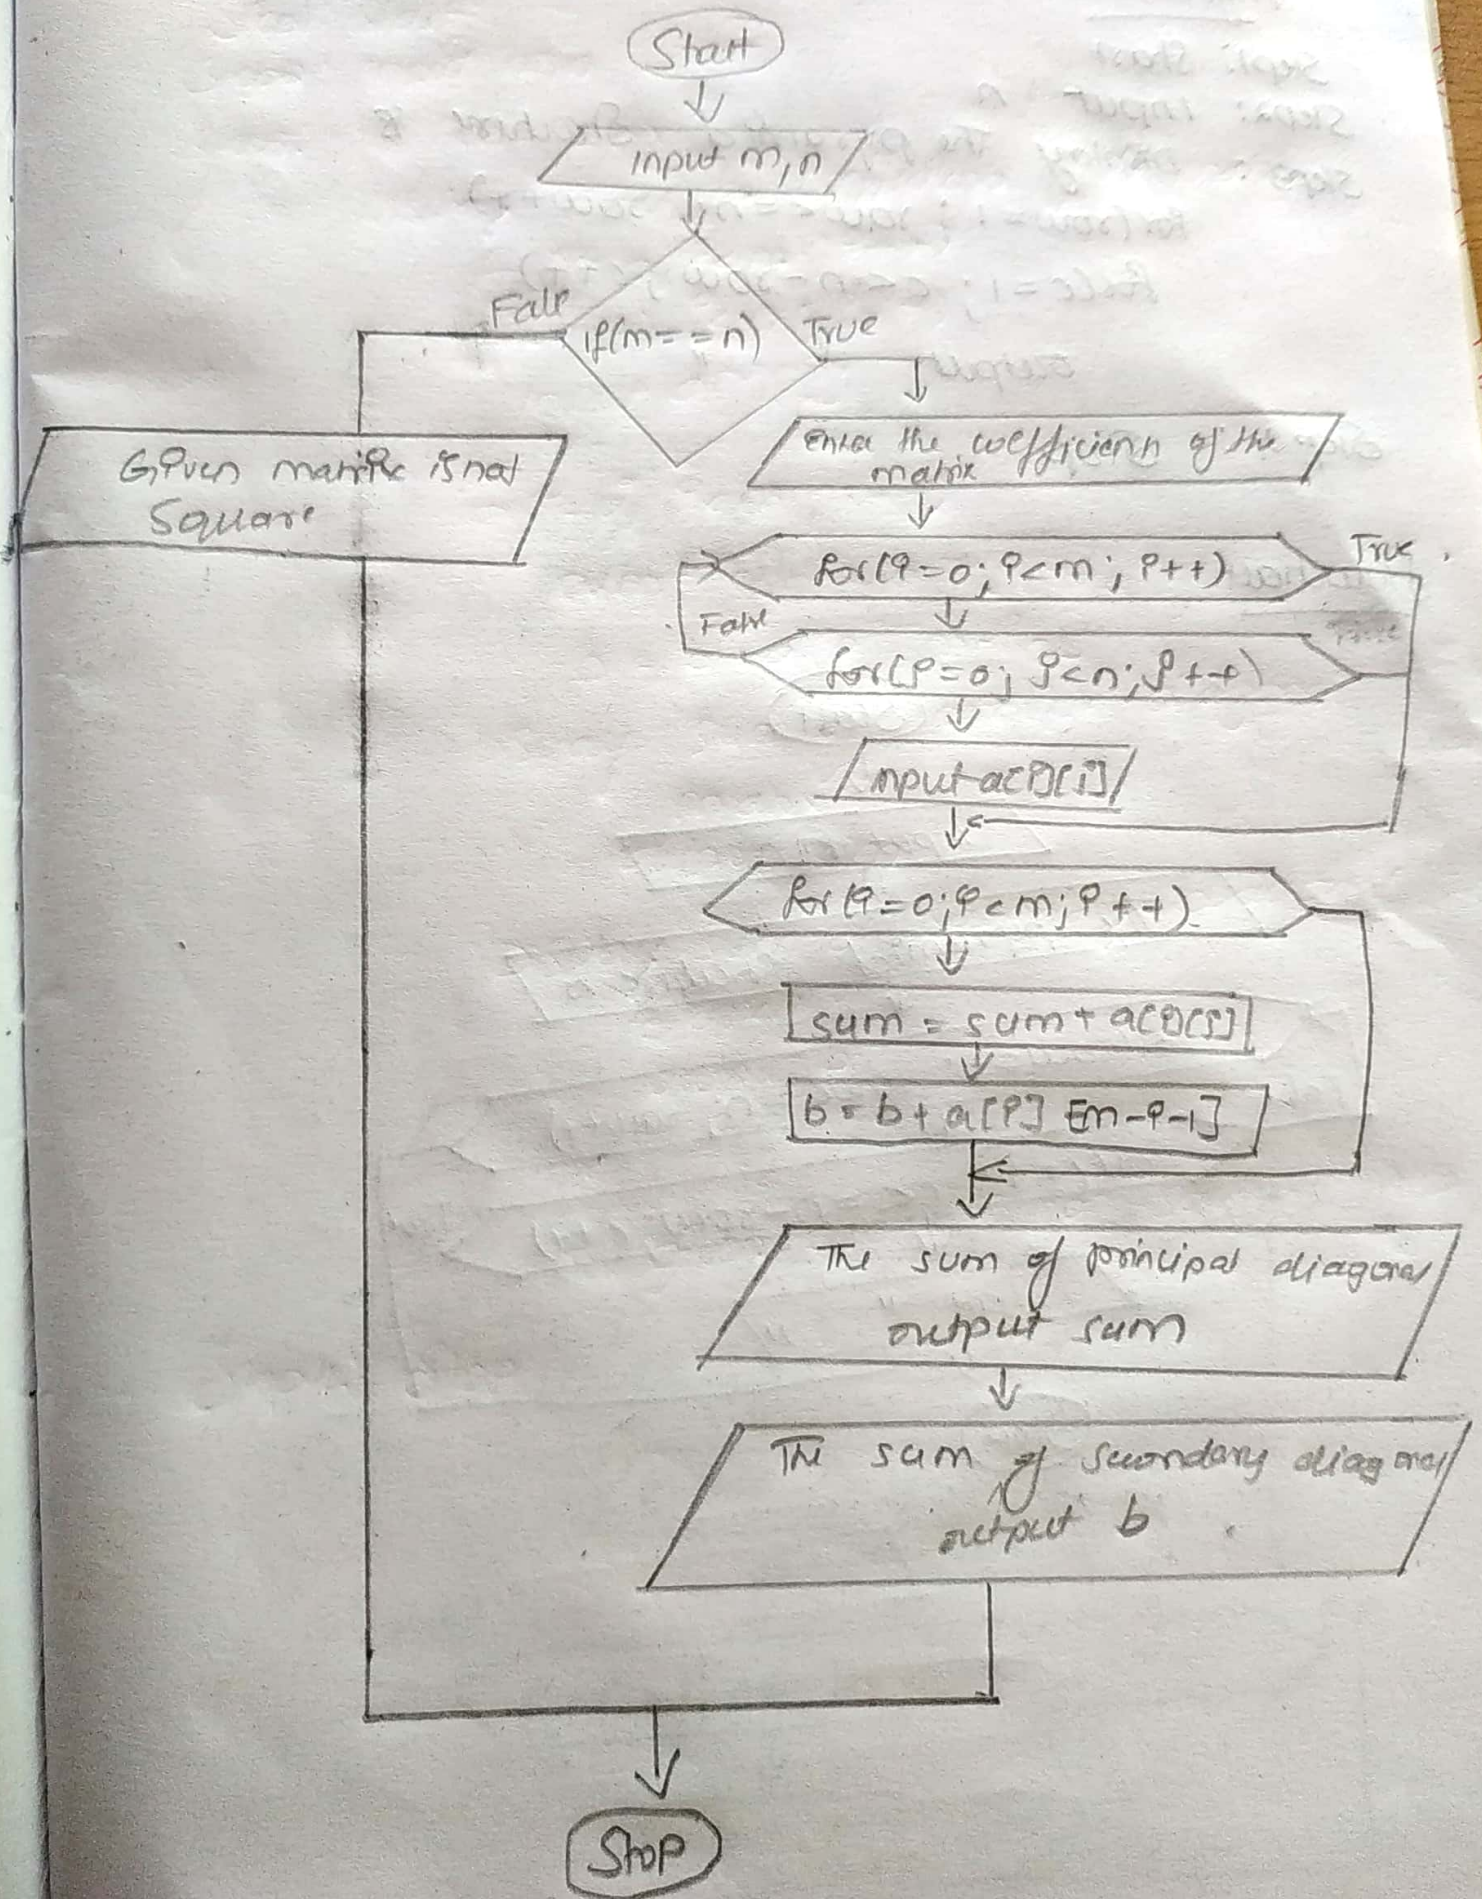 Start
input m,n
False
if(m==n)
True
Given matrix is not
Square
Enter the coefficient of the
matrix
for(i=0; i<m; i++)
True
False
for(j=0; j<n; j++)
True
input a[i][j]
for(i=0; i<m; i++)
sum = sum + a[i][i]
b = b + a[i] [m-i-1]
The sum of principal diagonal
output sum
The sum of secondary diagonal
output b
Stop